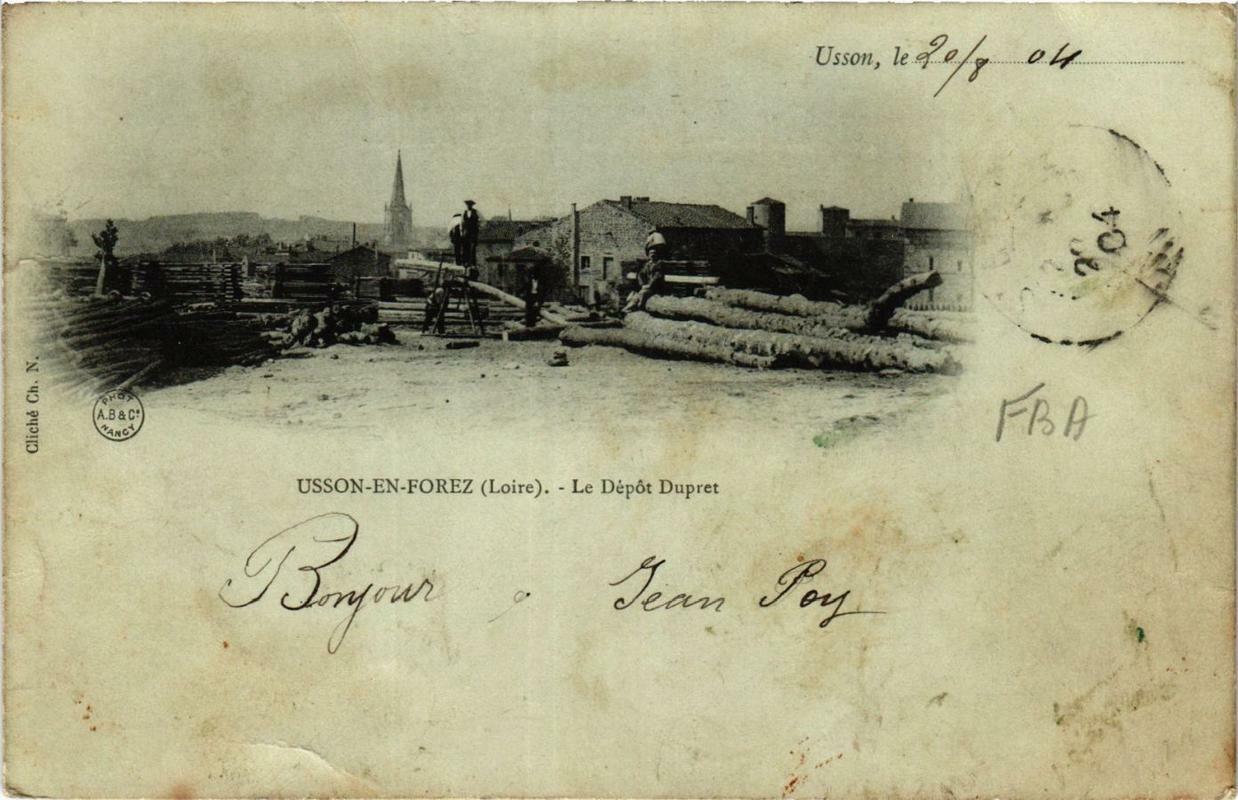 Usson, le 20/8 04
20
04
FBA
Cliché Ch. N.
PHOT
A.B & Cº
NANCY
USSON-EN-FOREZ (Loire). - Le Dépôt Dupret
Bonjour Jean Poy